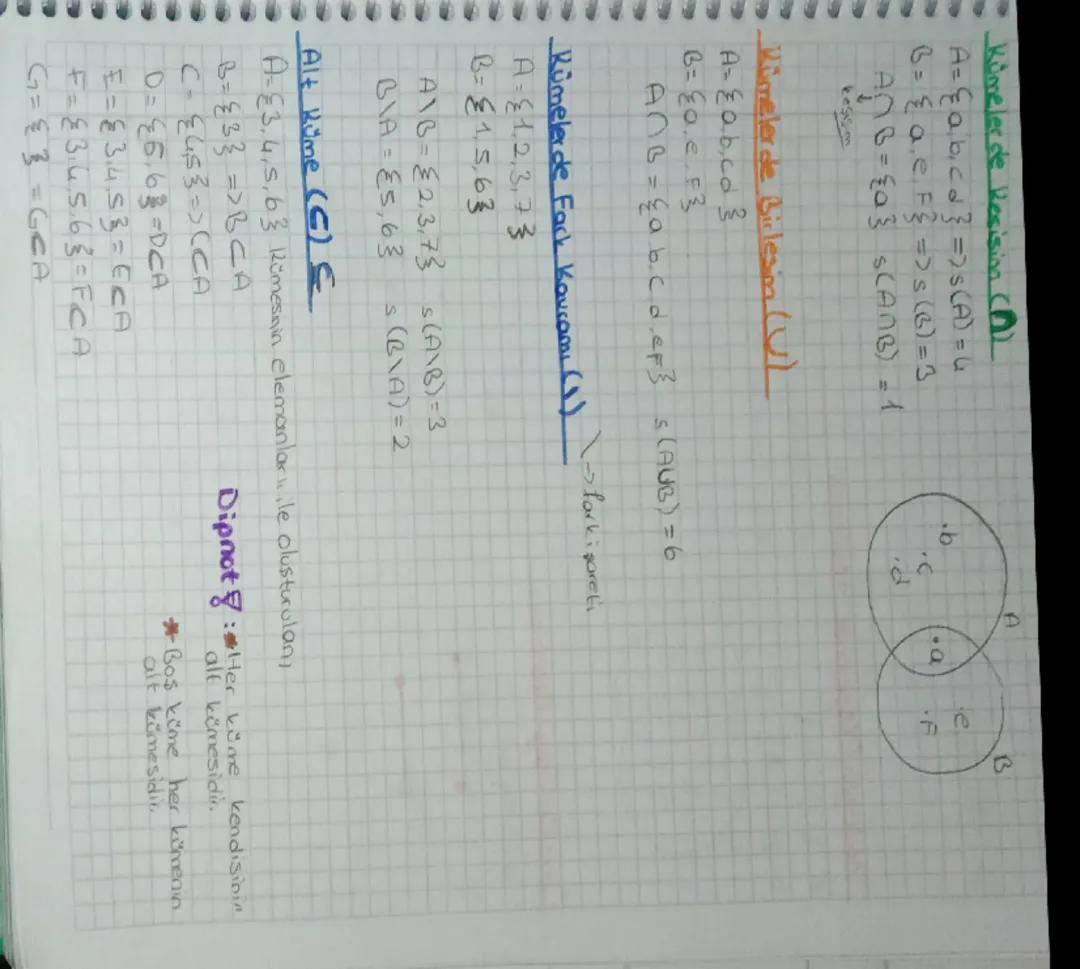 Kümelerde Kesişim (∩)
A={a,b,c,d} => s(A)=4
B={a,e,F} => s(B)=3
A∩B={a} s(A∩B)=1
↓
kesişim
A B
.b .c .d .a .e .F
Kümelerde Birleşim (U)
A={a,b,c,d}
B={a,e,F}
A∩B={a,b,c,d,e,F} s(AUB)=6
Kümelerde Fark Kavramı (\)
\ -> fark işareti
A={1,2,3,7}
B={1,5,6}
A\B={2,3,7} s(A\B)=3
B\A={5,6} s(B\A)=2
Alt Küme (⊂) ⊆
A={3,4,5,6} kümesinin elemanları, ile oluşturulan,
B={3} => B⊂A
C={4,5} => C⊂A
D={5,6} = D⊂A
E={3,4,5} = E⊂A
F={3,4,5,6} = F⊂A
G={ } = G⊂A
Dipnot!: *Her küme kendisinin
alt kümesidir.
*Boş küme her kümenin
alt kümesidir.